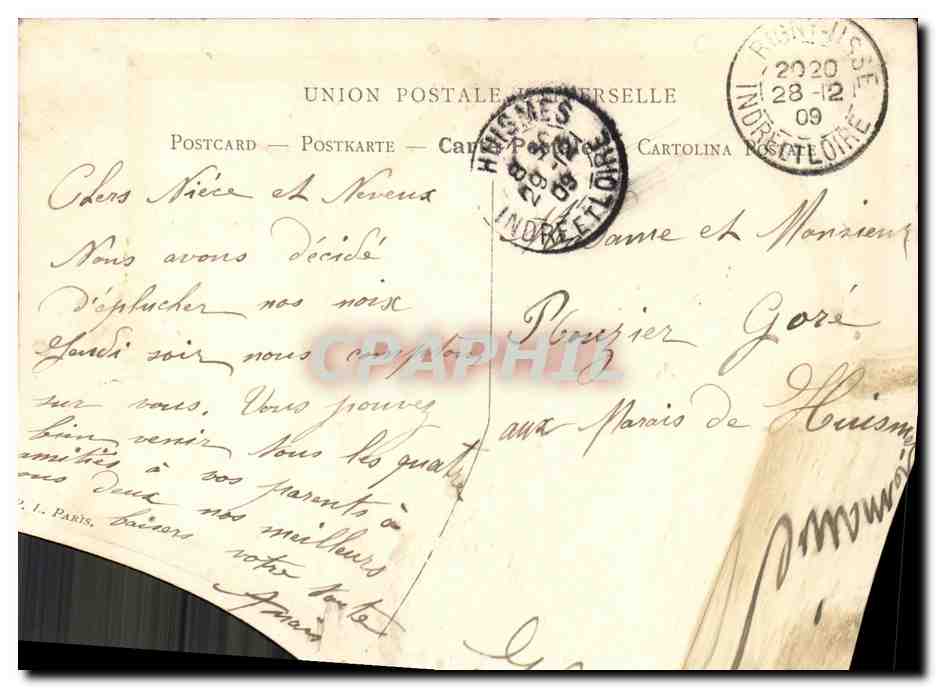 UNION POSTALE UNIVERSELLE
POSTCARD — POSTKARTE — Carte Postale — CARTOLINA POSTALE
RIGNY-USSE
2020
28-12
09
INDRE ET LOIRE
HUISMES
8
29-12
09
INDRE ET LOIRE
Chers Niéce et Neveux
Nous avons décidé
d'éplucher nos noix
Jeudi soir nous comptons
sur vous. Vous pouvez
bien venir Vous les quatre
amitiés à vos parents à
vous deux nos meilleurs
baisers votre tante
Anaïs
L. PARIS.
Madame et Monsieur
Plouzier Goré
aux Marais de Huismes
CPAPHIL